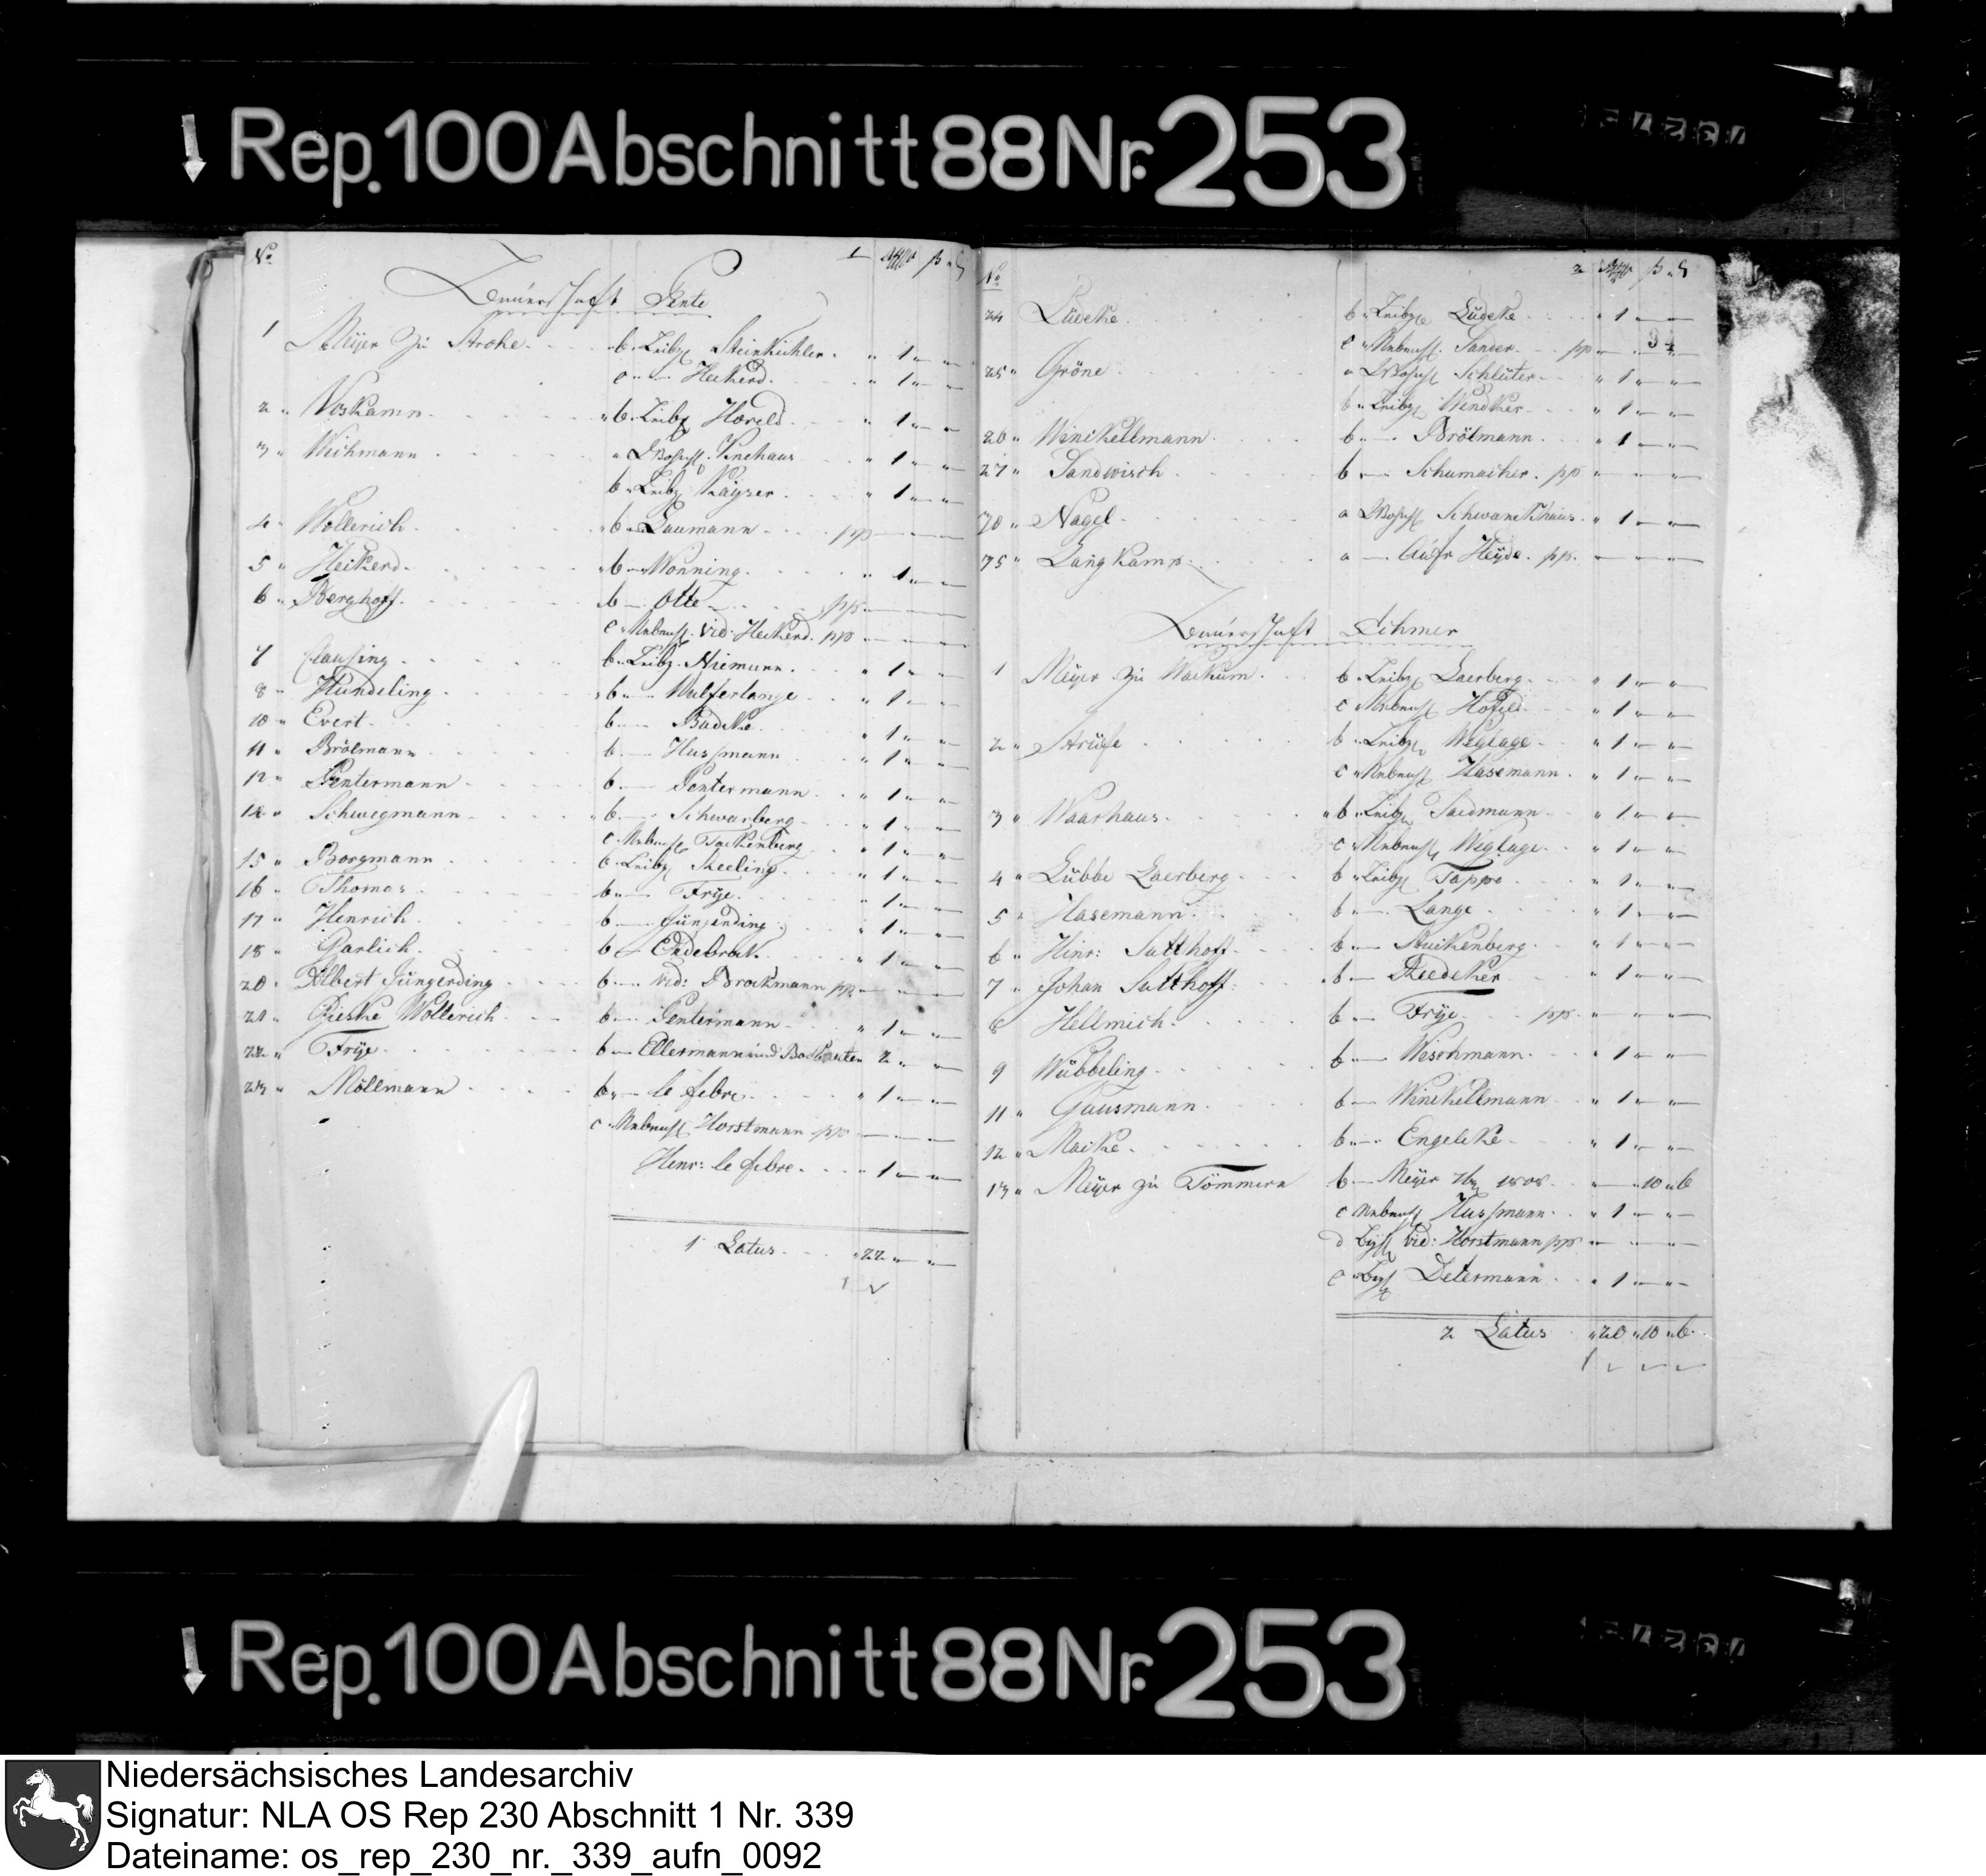 Rep. 100 Abschnitt 88 Nr. 253
No. 1 Rthlr ß ₰
Bauerschaft Pente
1 Meyer zu Strohe b. Leibz. Steinkühler 1
c Heckerd 1
2 Voskamp b. Leibz. Horeld 1
3 Weihmann a Wohnh. Knehaus 1
b. Leibz. Kayser 1
4 Wollerich b Laumann pp
5 Heikerd b Wonning 1
6 Berghoff b Otte pp
c Nebenh. Vid: Heckerd. pp
7 Clausing b. Leibz. Niemann 1
8 Hundeling b Wulferlange 1
10 Evert b Badeke 1
11 Brölmann b Hussmann 1
12 Pentermann b Pentermann 1
14 Schwegmann b Schwarberg 1
c Nebenh. Tackenberg 1
15 Borgmann b. Leibz. Steeling 1
16 Thomas b Frye 1
17 Henrich b Jüngerding 1
18 Garlich b Endebrok 1
20 Albert Jüngerding b vid: Brockmann pp
21 Gieske Wollerich b Pentermann 1
22 Frÿe b Ellermann und 2
23 Möllmann b le febre 1
c Nebenh. Horstmann pp
Henr: le febre 1
1 Latus 22
No. 2 Rthlr ß ₰
24 Lüdeke b Leibz. Lüdeke 1
c Nebenh. Sander pp
25 Gröne a Wohnh. Schlüter 1
b Leibz. Wendker 1
26 Winckellmann b Brölmann 1
27 Sandwisch b Schumacher. pp
70 Nagel a Wohnh. 1
75 Langkamp a Aufr Heyde. pp.
Bauerschaft Achmer
1 Meyer zu Wackum b Leibz. Laerberg 1
c Nebenh. Hofeld 1
2 Strüfe b Leibz. Weglage 1
c Nebenh. Hasemann 1
3 Waarhaus b Leibz. Saedmann 1
c Nebenh. Weglage 1
4 Lübbe Laerberg b Leibz. Tappe 1
5 Hasemann b Lange 1
6 Hinr: Sutthoff b Stuckenberg 1
7 Johan Sutthoff b Reedeker 1
8 Hellmich b Frÿe pp
9 Wübbeling b Wischmann 1
11 Gausmann b Winckellmann 1
12 Macke b Engelke 1
13 Meyer zu Tömmern b Meÿer 1808 10 6
c Nebenh. Hussmann 1
d Vid: Horstmann pp
e Determann 1
2 Latus 20 10 6
Rep. 100 Abschnitt 88 Nr. 253
Niedersächsisches Landesarchiv
Signatur: NLA OS Rep 230 Abschnitt 1 Nr. 339
Dateiname: os_rep_230_nr._339_aufn_0092